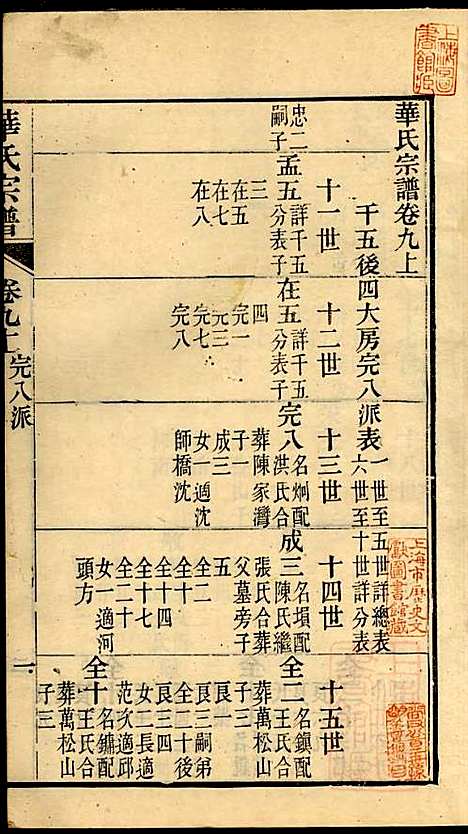 華氏宗譜卷九上
干五後四大房完八派表 一世至五世詳總表 六世至十世詳分表
十一世
十二世
十三世
十四世
十五世
忠二嗣子
孟五 詳千五分表子三
在五
在七
在八
在五 詳千五分表子四
完一
完三
完七
完八
完八 名炯配洪氏合葬陳家灣子一
成三
女一適沈師橋沈
成三 名塤配陳氏繼張氏合葬父墓旁子五
全二
全十
全十四
全十七
全二十
女一適河頭方
全二 名鎮配王氏合葬萬松山子三
艮一嗣弟全十後
艮三
艮四
女二長適范次適邱
全十 名鏞配王氏合葬萬松山子三
華氏宗譜
卷九上
完八派
一
上海圖書館藏
上海市歷史文獻圖書館藏